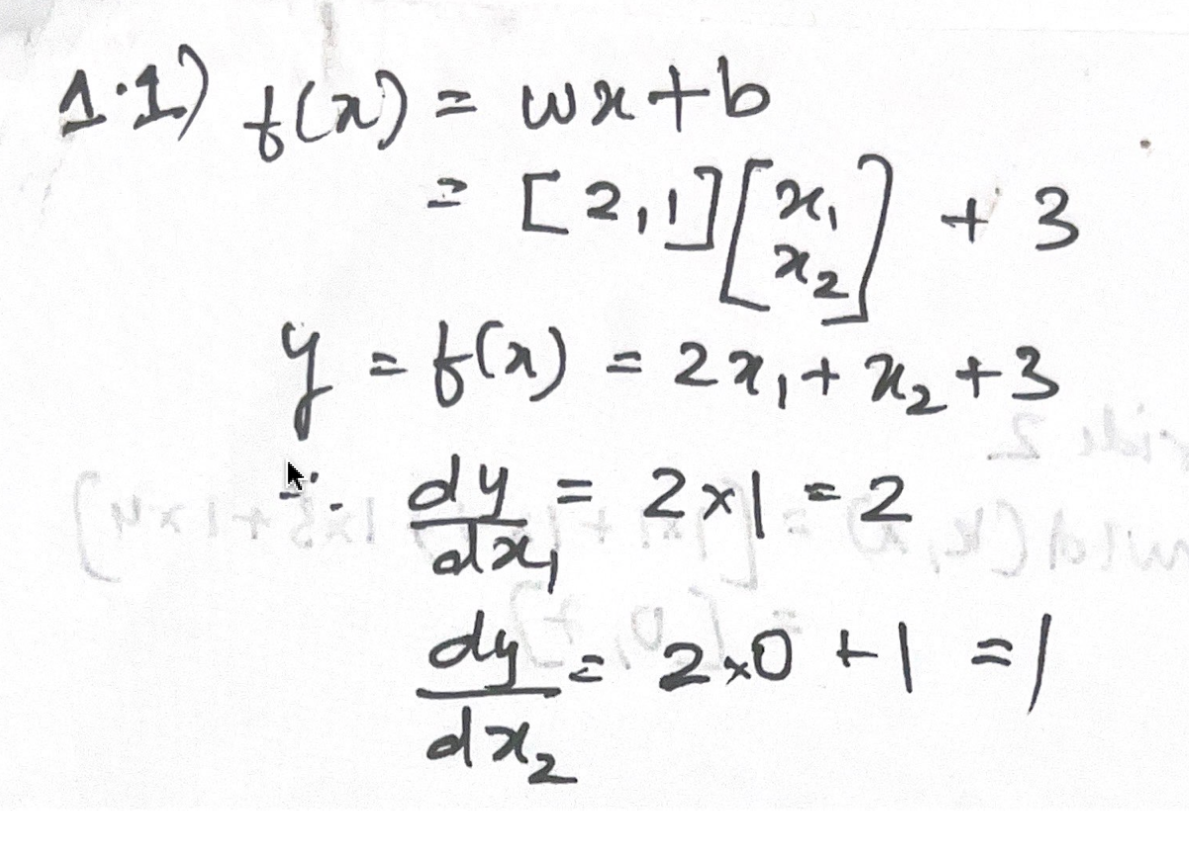 1.1) f(x) = wx + b
= [2,1] [x₁ x₂] + 3
y = f(x) = 2x₁ + x₂ + 3
∴ dy/dx₁ = 2×1 = 2
dy/dx₂ = 2×0 + 1 = 1